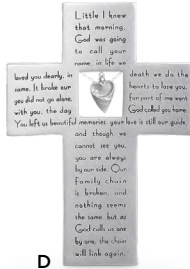 Little I knew
that morning,
God was going
to call your
name, in life we
loved you dearly, in death we do the
same. It broke our hearts to lose you,
you did not go alone, for part of me went
with you, the day God called you home.
You left us beautiful memories, your love is still our guide,
and though we
cannot see you,
you are always
by our side. Our
family chain
is broken, and
nothing seems
the same, but as
God calls us one
by one, the chain
will link again.
D